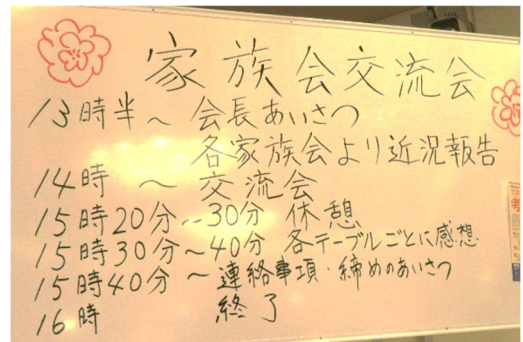 家族会交流会
13時半〜 会長あいさつ
各家族会より近況報告
14時 〜 交流会
15時20分〜30分 休憩
15時30分〜40分 各テーブルごとに感想
15時40分〜連絡事項・締めのあいさつ
16時 終了